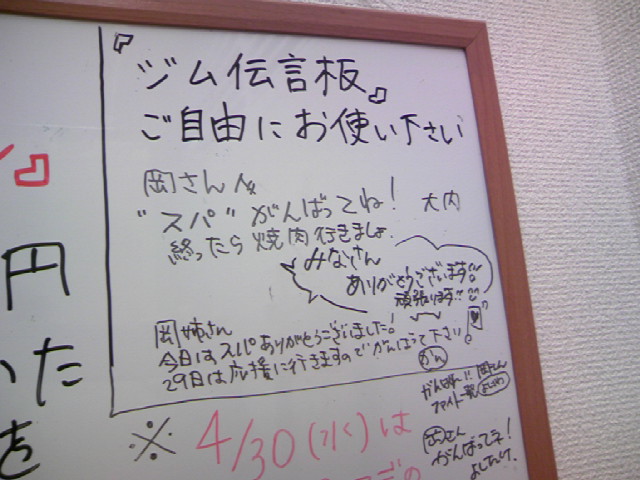 『ジム伝言板』
ご自由にお使い下さい
岡さんへ
"スパ"がんばってね! 大内
終ったら焼肉行きましょ。
みなさん
ありがとうございます!!
頑張ります!!
岡姉さん
今日はスパありがとうございました!
29日は応援に行きますのでがんばって下さい。
がんばれ!! 岡さん
ファイト一発
岡さん
がんばって!
よしたけ
※4/30(水)は
円
いた
を